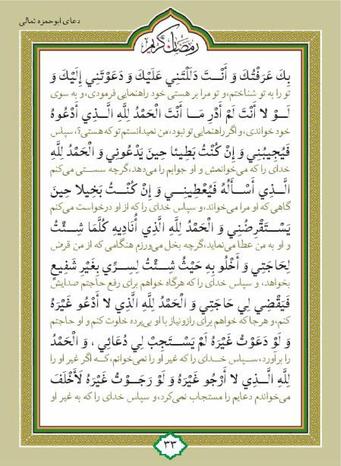 دعای ابوحمزه ثمالی
رمضان کریم
بِكَ عَرَفْتُكَ وَ أَنْتَ دَلَلْتَنِي عَلَيْكَ وَ دَعَوْتَنِي إِلَيْكَ وَ
تو را به تو شناختم، و تو مرا بر هستی خود راهنمایی فرمودی، و به سوی
لَوْ لا أَنْتَ لَمْ أَدْرِ مَا أَنْتَ الْحَمْدُ لِلَّهِ الَّذِي أَدْعُوهُ
خود خواندی، و اگر راهنمایی تو نبود، من نمیدانستم تو که هستی؟، سپاس
فَيُجِيبُنِي وَ إِنْ كُنْتُ بَطِيئا حِينَ يَدْعُونِي وَ الْحَمْدُ لِلَّهِ
خدای را که می‌خوانمش و او جوابم را می‌دهد، گرچه سستی می‌کنم
الَّذِي أَسْأَلُهُ فَيُعْطِينِي وَ إِنْ كُنْتُ بَخِيلا حِينَ
گاهی که او مرا می‌خواند، و سپاس خدای را که از او درخواست می‌کنم
يَسْتَقْرِضُنِي وَ الْحَمْدُ لِلَّهِ الَّذِي أُنَادِيهِ كُلَّمَا شِئْتُ
و او به من عطا می‌نماید، گرچه بخل می‌ورزم هنگامی که از من قرض
لِحَاجَتِي وَ أَخْلُو بِهِ حَيْثُ شِئْتُ لِسِرِّي بِغَيْرِ شَفِيعٍ
بخواهد، و سپاس خدای را که هرگاه خواهم برای رفع حاجتم صدایش
فَيَقْضِي لِي حَاجَتِي وَ الْحَمْدُ لِلَّهِ الَّذِي لا أَدْعُو غَيْرَهُ
کنم، و هرجا که خواهم برای راز و نیاز با او بی‌پرده خلوت کنم و او حاجتم
وَ لَوْ دَعَوْتُ غَيْرَهُ لَمْ يَسْتَجِبْ لِي دُعَائِي ، وَ الْحَمْدُ
را برآورد، سپاس خدای را که غیر او را نمی‌خوانم، که اگر غیر او را
لِلَّهِ الَّذِي لا أَرْجُو غَيْرَهُ وَ لَوْ رَجَوْتُ غَيْرَهُ لَأَخْلَفَ
می‌خواندم دعایم را مستجاب نمی‌کرد، و سپاس خدای را که به غیر او
۳۳